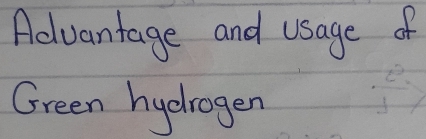 Advantage and usage of
Green hydrogen